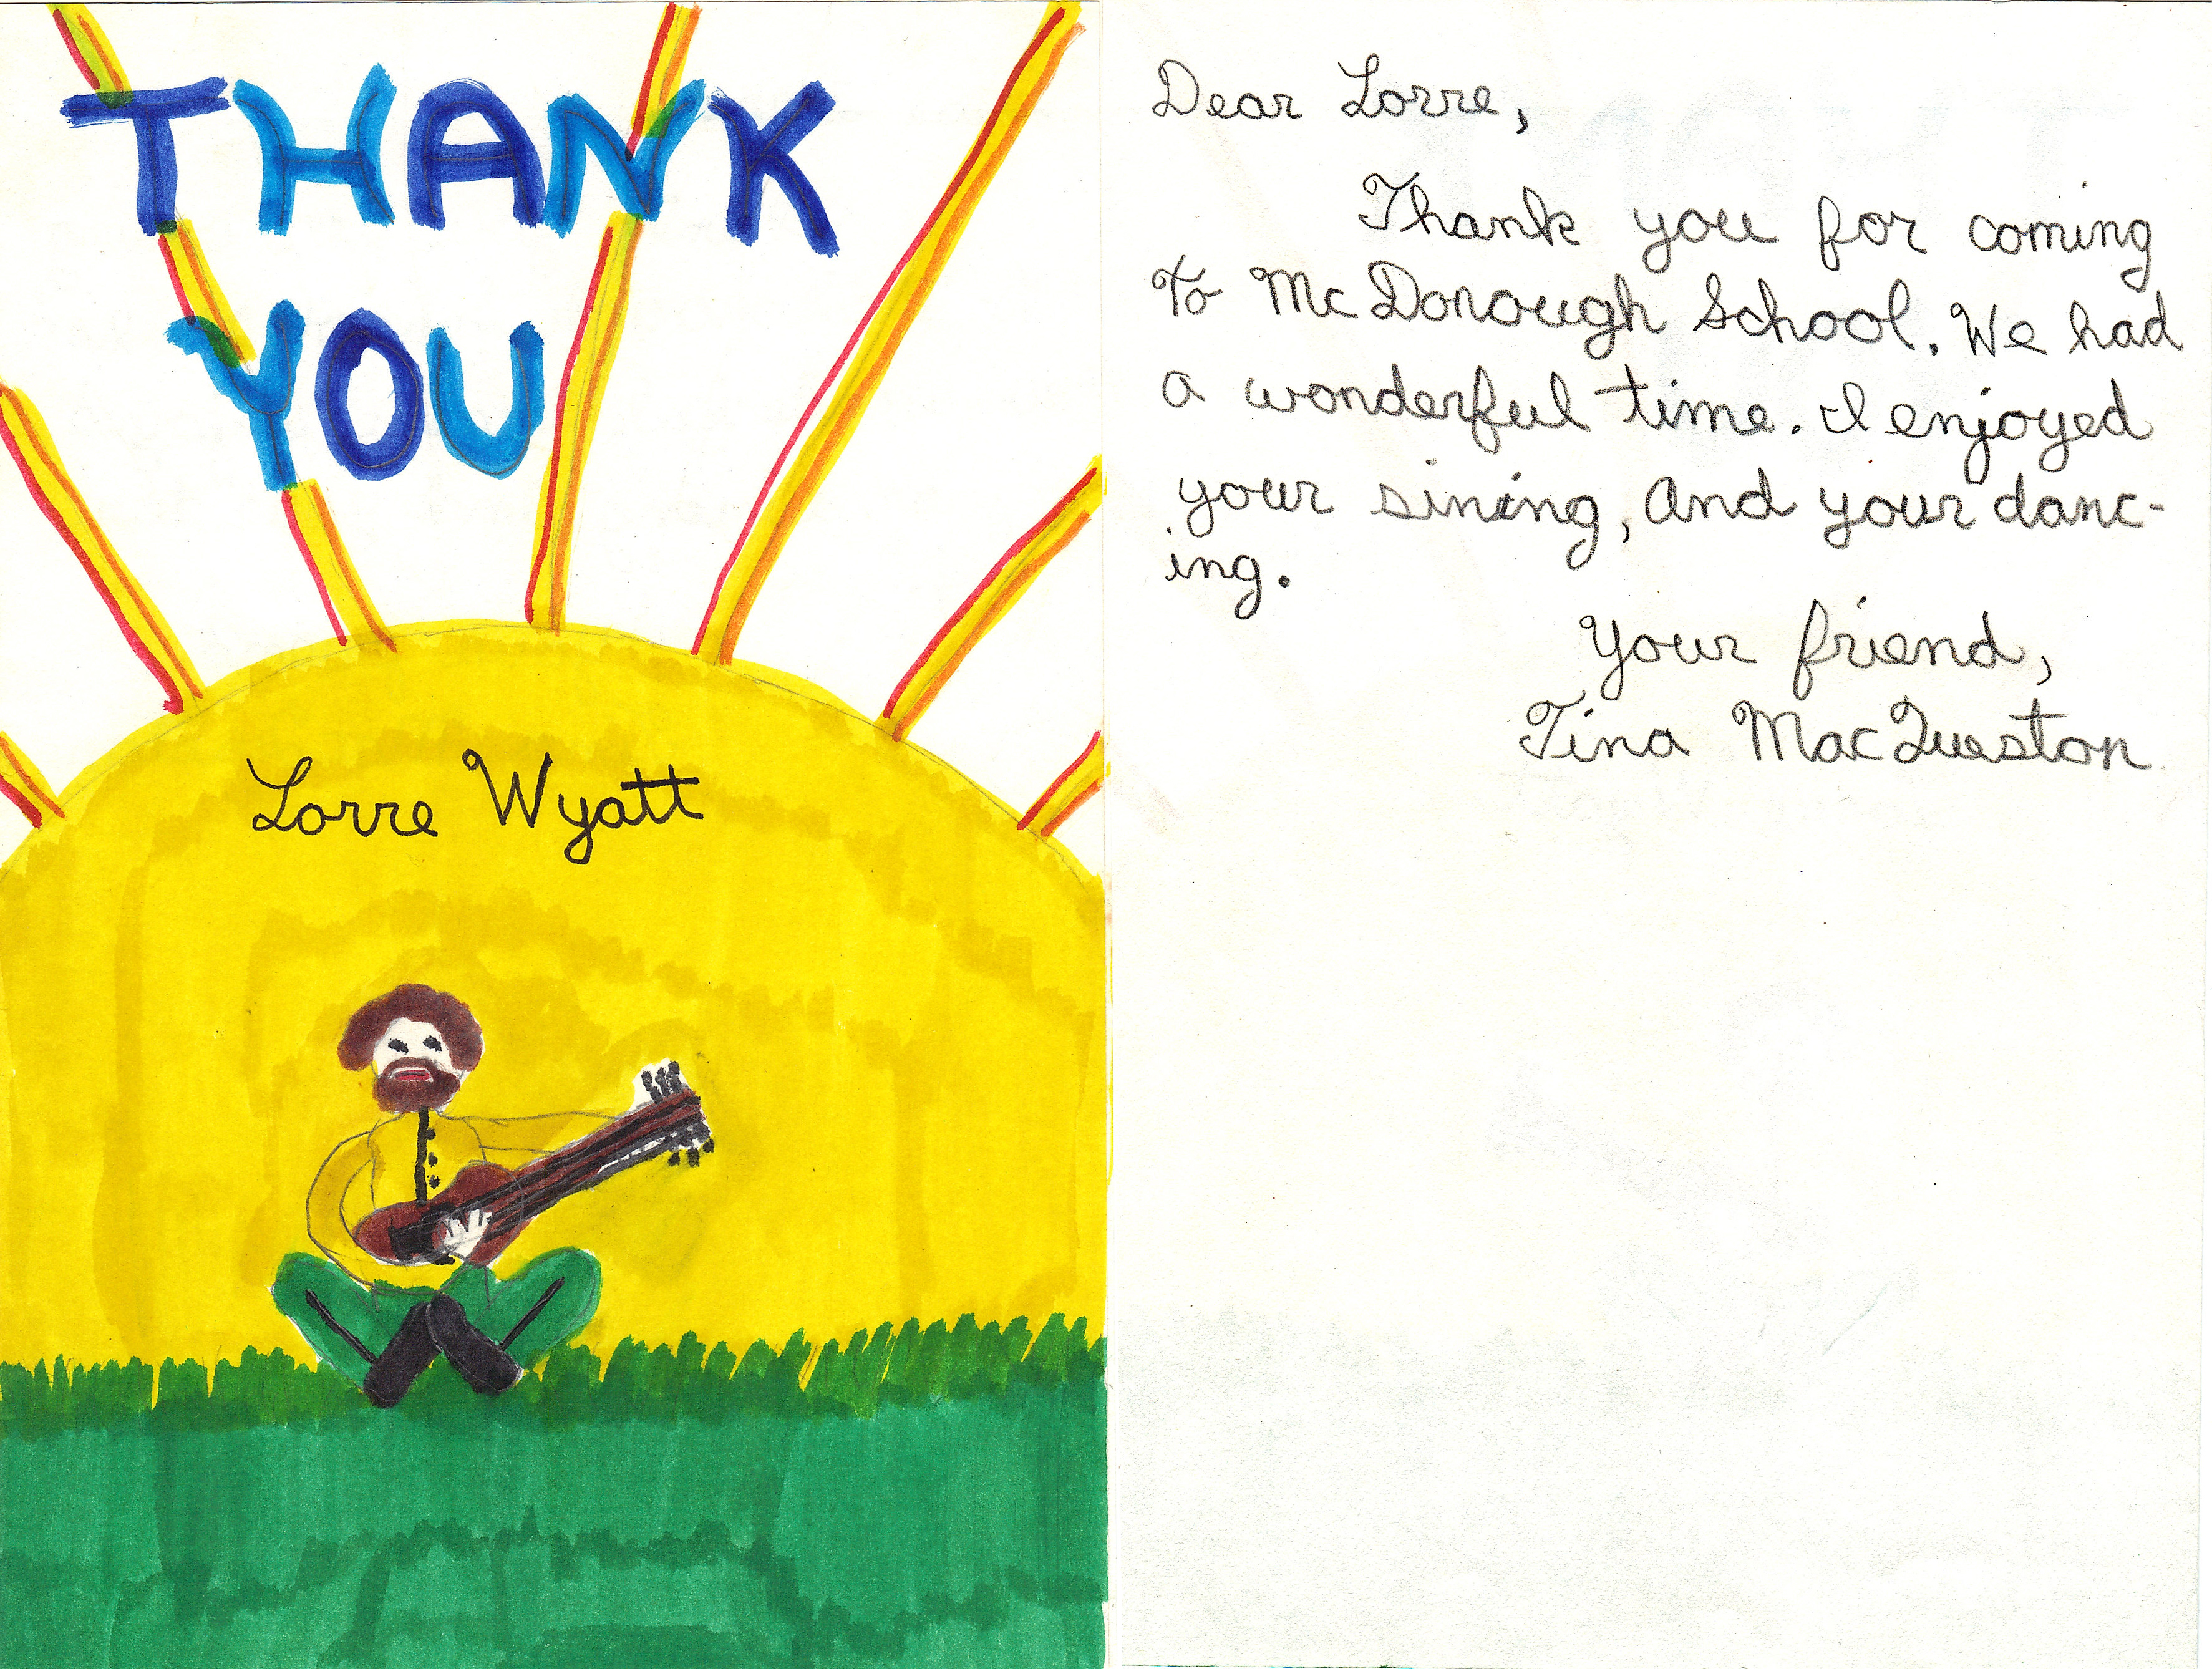 THANK
YOU
Lorre Wyatt
Dear Lorre,
Thank you for coming
To McDonough School. We had
a wonderful time. I enjoyed
your sining, and your danc-
ing.
Your friend,
Tina MacQueston